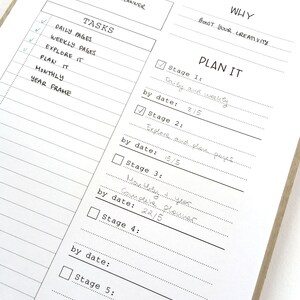 PLANNER
TASKS
DAILY PAGES
WEEKLY PAGES
EXPLORE IT
PLAN IT
MONTHLY
YEAR FRAME
WHY
BOOST YOUR CREATIVITY
PLAN IT
Stage 1:
Daily and weekly
by date: 8/5
Stage 2:
Explore and plan pages
by date: 5/5
Stage 3:
Monthly & year
Complete planner
by date: 22/5
Stage 4:
by date:
Stage 5: